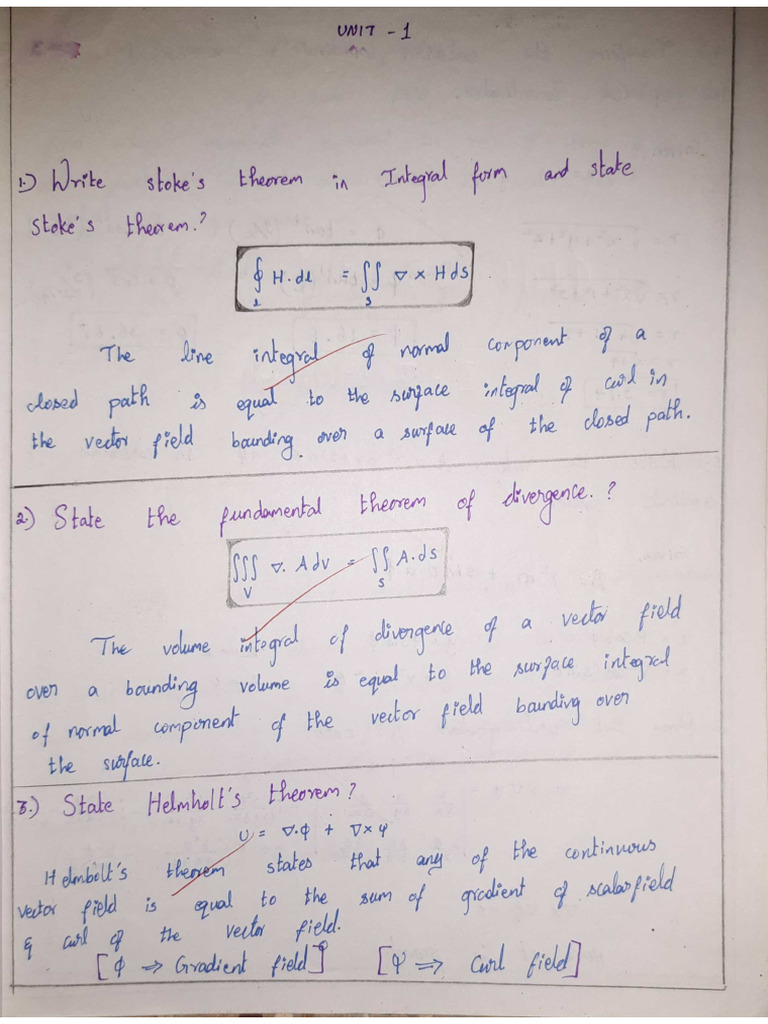 UNIT - 1
1.) Write stoke's theorem in Integral form and state
stoke's theorem.?
∮ H.dl = ∬ ∇ × H ds
l s
The line integral of normal component of a
closed path is equal to the surface integral of curl in
the vector field bounding over a surface of the closed path.
2.) State the fundamental theorem of divergence.?
∭ ∇. A dv = ∬ A.ds
V S
The volume integral of divergence of a vector field
over a bounding volume is equal to the surface integral
of normal component of the vector field bounding over
the surface.
3.) State Helmholt's theorem?
U = ∇.Φ + ∇×φ
Helmbolt's theorem states that any of the continuous
vector field is equal to the sum of gradient of scalarfield
& curl of the vector field.
[ϕ ⇒ Gradient field] [Ψ ⇒ Curl field]